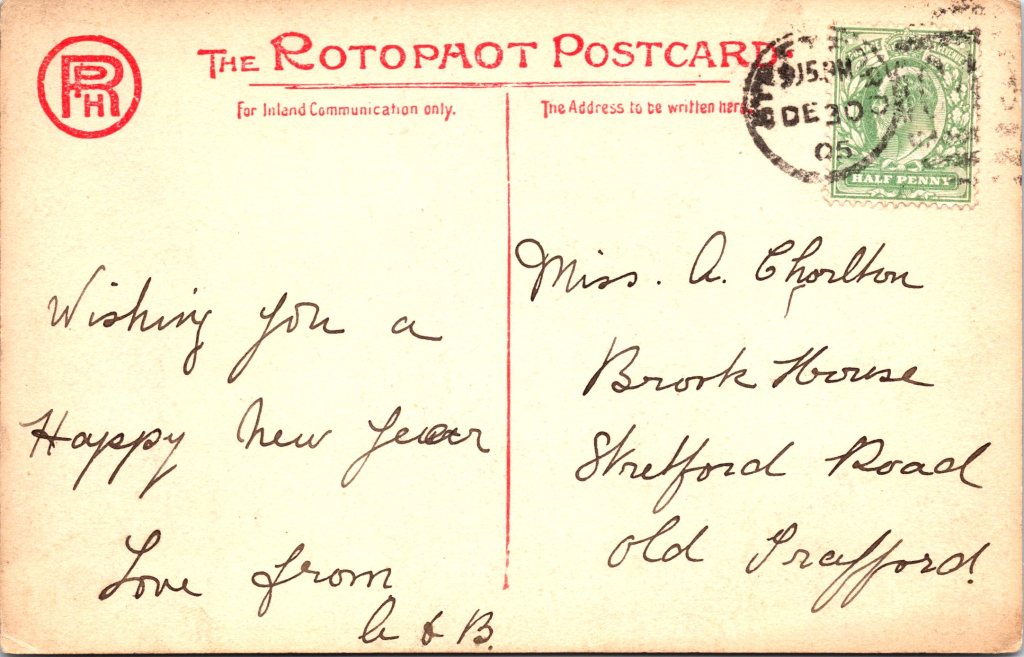 RPH
THE ROTOPHOT POSTCARD.
For Inland Communication only.
The Address to be written here.
9.15 PM
DE 30
05
HALF PENNY
Wishing you a
Happy New Year
Love from
A & B.
Miss. A. Chorlton
Brook House
Stretford Road
Old Trafford.